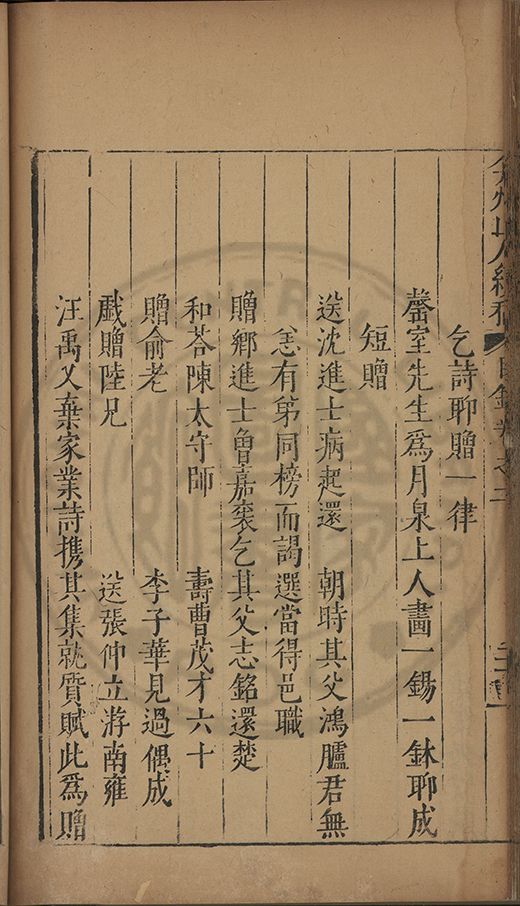 弇州山人續稿 目錄卷之二
乞詩聊贈一律
罄室先生爲月泉上人畫一錫一鉢聊成
短贈
送沈進士病起還 朝時其父鴻臚君無
恙有弟同榜而謁選當得邑職
贈鄉進士魯嘉褒乞其父志銘還楚
和荅陳太守師 壽曹茂才六十
贈俞老 李子華見過偶成
戲贈陸兄 送張仲立游南雍
汪禹乂棄家業詩携其集就質賦此爲贈